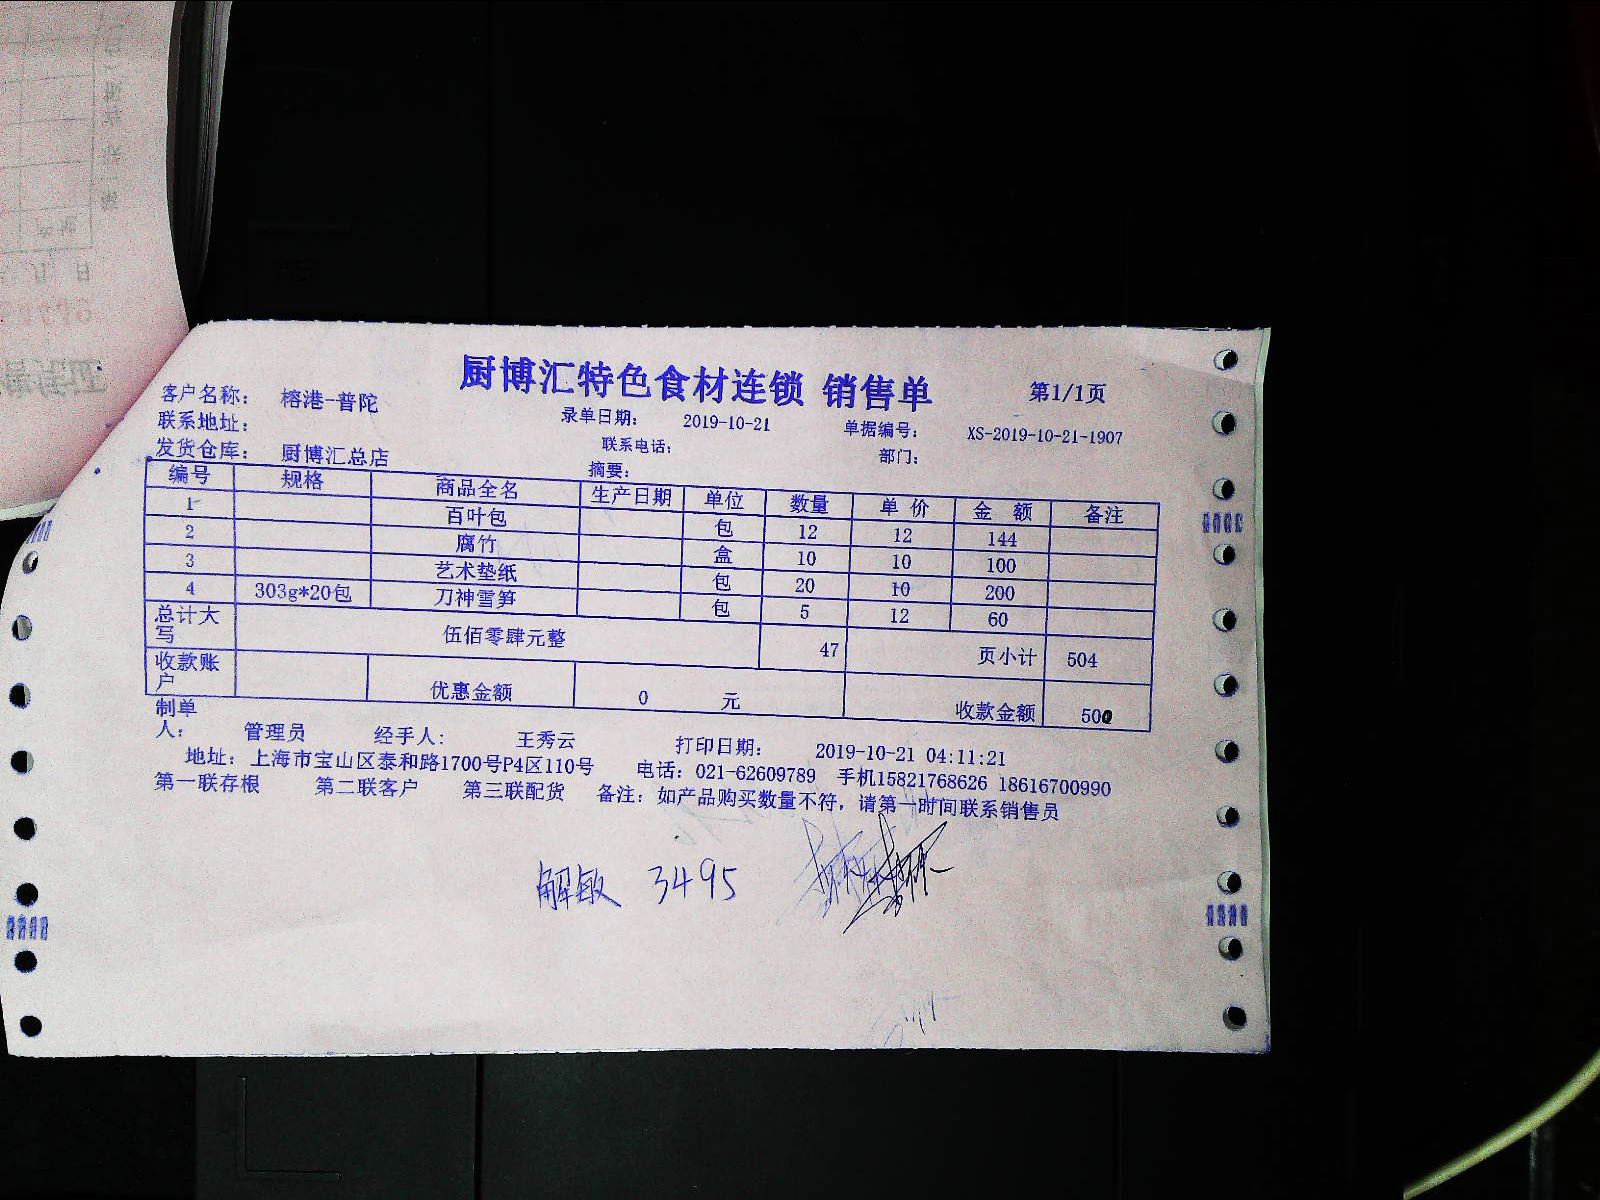 厨博汇特色食材连锁 销售单 第1/1页
客户名称: 榕港-普陀 录单日期: 2019-10-21 单据编号: XS-2019-10-21-1907
联系地址: 联系电话: 部门:
发货仓库: 厨博汇总店 摘要:
编号 规格 商品全名 生产日期 单位 数量 单价 金额 备注
1 百叶包 包 12 12 144
2 腐竹 盒 10 10 100
3 艺术垫纸 包 20 10 200
4 303g*20包 刀神雪笋 包 5 12 60
总计大写 伍佰零肆元整 47 页小计 504
收款账户 优惠金额 0 元 收款金额 500
制单人: 管理员 经手人: 王秀云 打印日期: 2019-10-21 04:11:21
地址: 上海市宝山区泰和路1700号P4区110号 电话: 021-62609789 手机15821768626 18616700990
第一联存根 第二联客户 第三联配货 备注: 如产品购买数量不符, 请第一时间联系销售员
解敏 3495